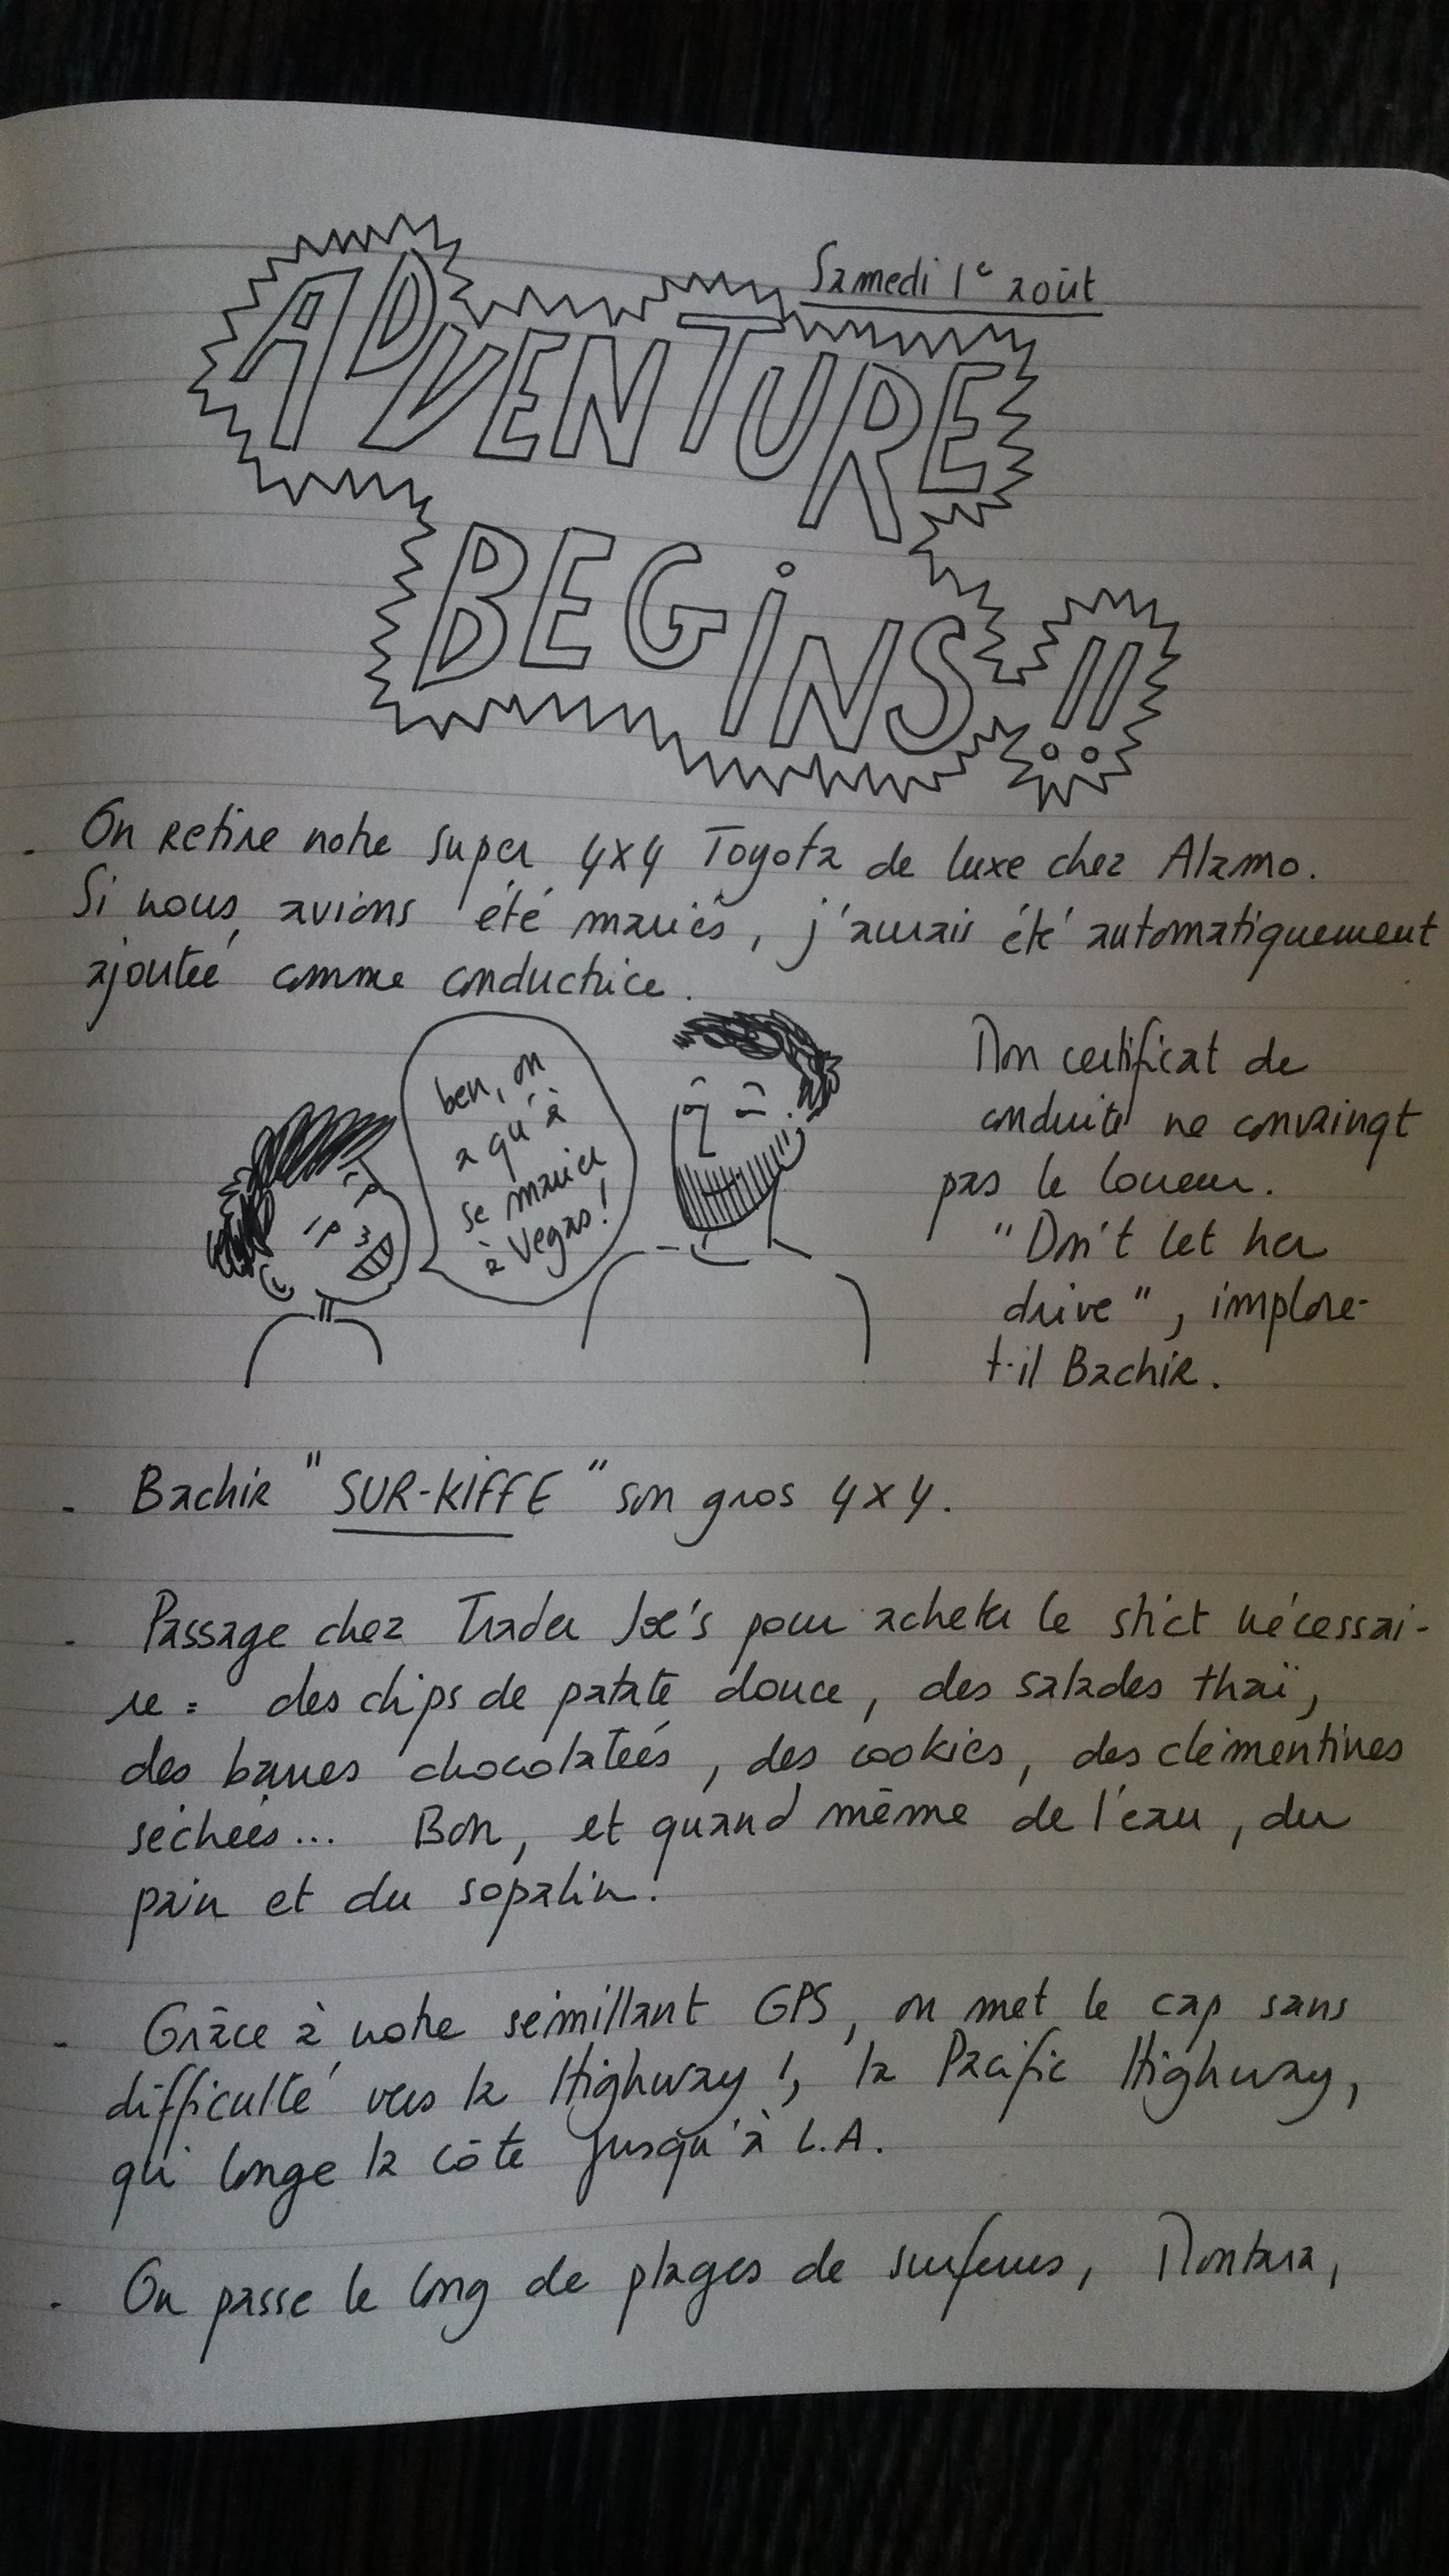 Samedi 1e août
ADVENTURE
BEGINS !!
- On retire notre super 4x4 Toyota de luxe chez Alamo.
Si nous avions été mariés, j'aurais été automatiquement
ajoutée comme conductrice.
ben, on
a qu'à
se marier
à Vegas!
Mon certificat de
conduite ne convaingt
pas le loueur.
"Don't let her
drive", implore-
t-il Bachir.
- Bachir "SUR-KIFFE" son gros 4x4.
- Passage chez Trader Joe's pour acheter le strict nécessai-
re : des chips de patate douce, des salades thaï,
des barres chocolatées, des cookies, des clémentines
séchées... Bon, et quand même de l'eau, du
pain et du sopalin!
- Grâce à notre sémillant GPS, on met le cap sans
difficulté vers la Highway 1, la Pacific Highway,
qui longe la côte jusqu'à L.A.
- On passe le long de plages de surfeurs, Montara,